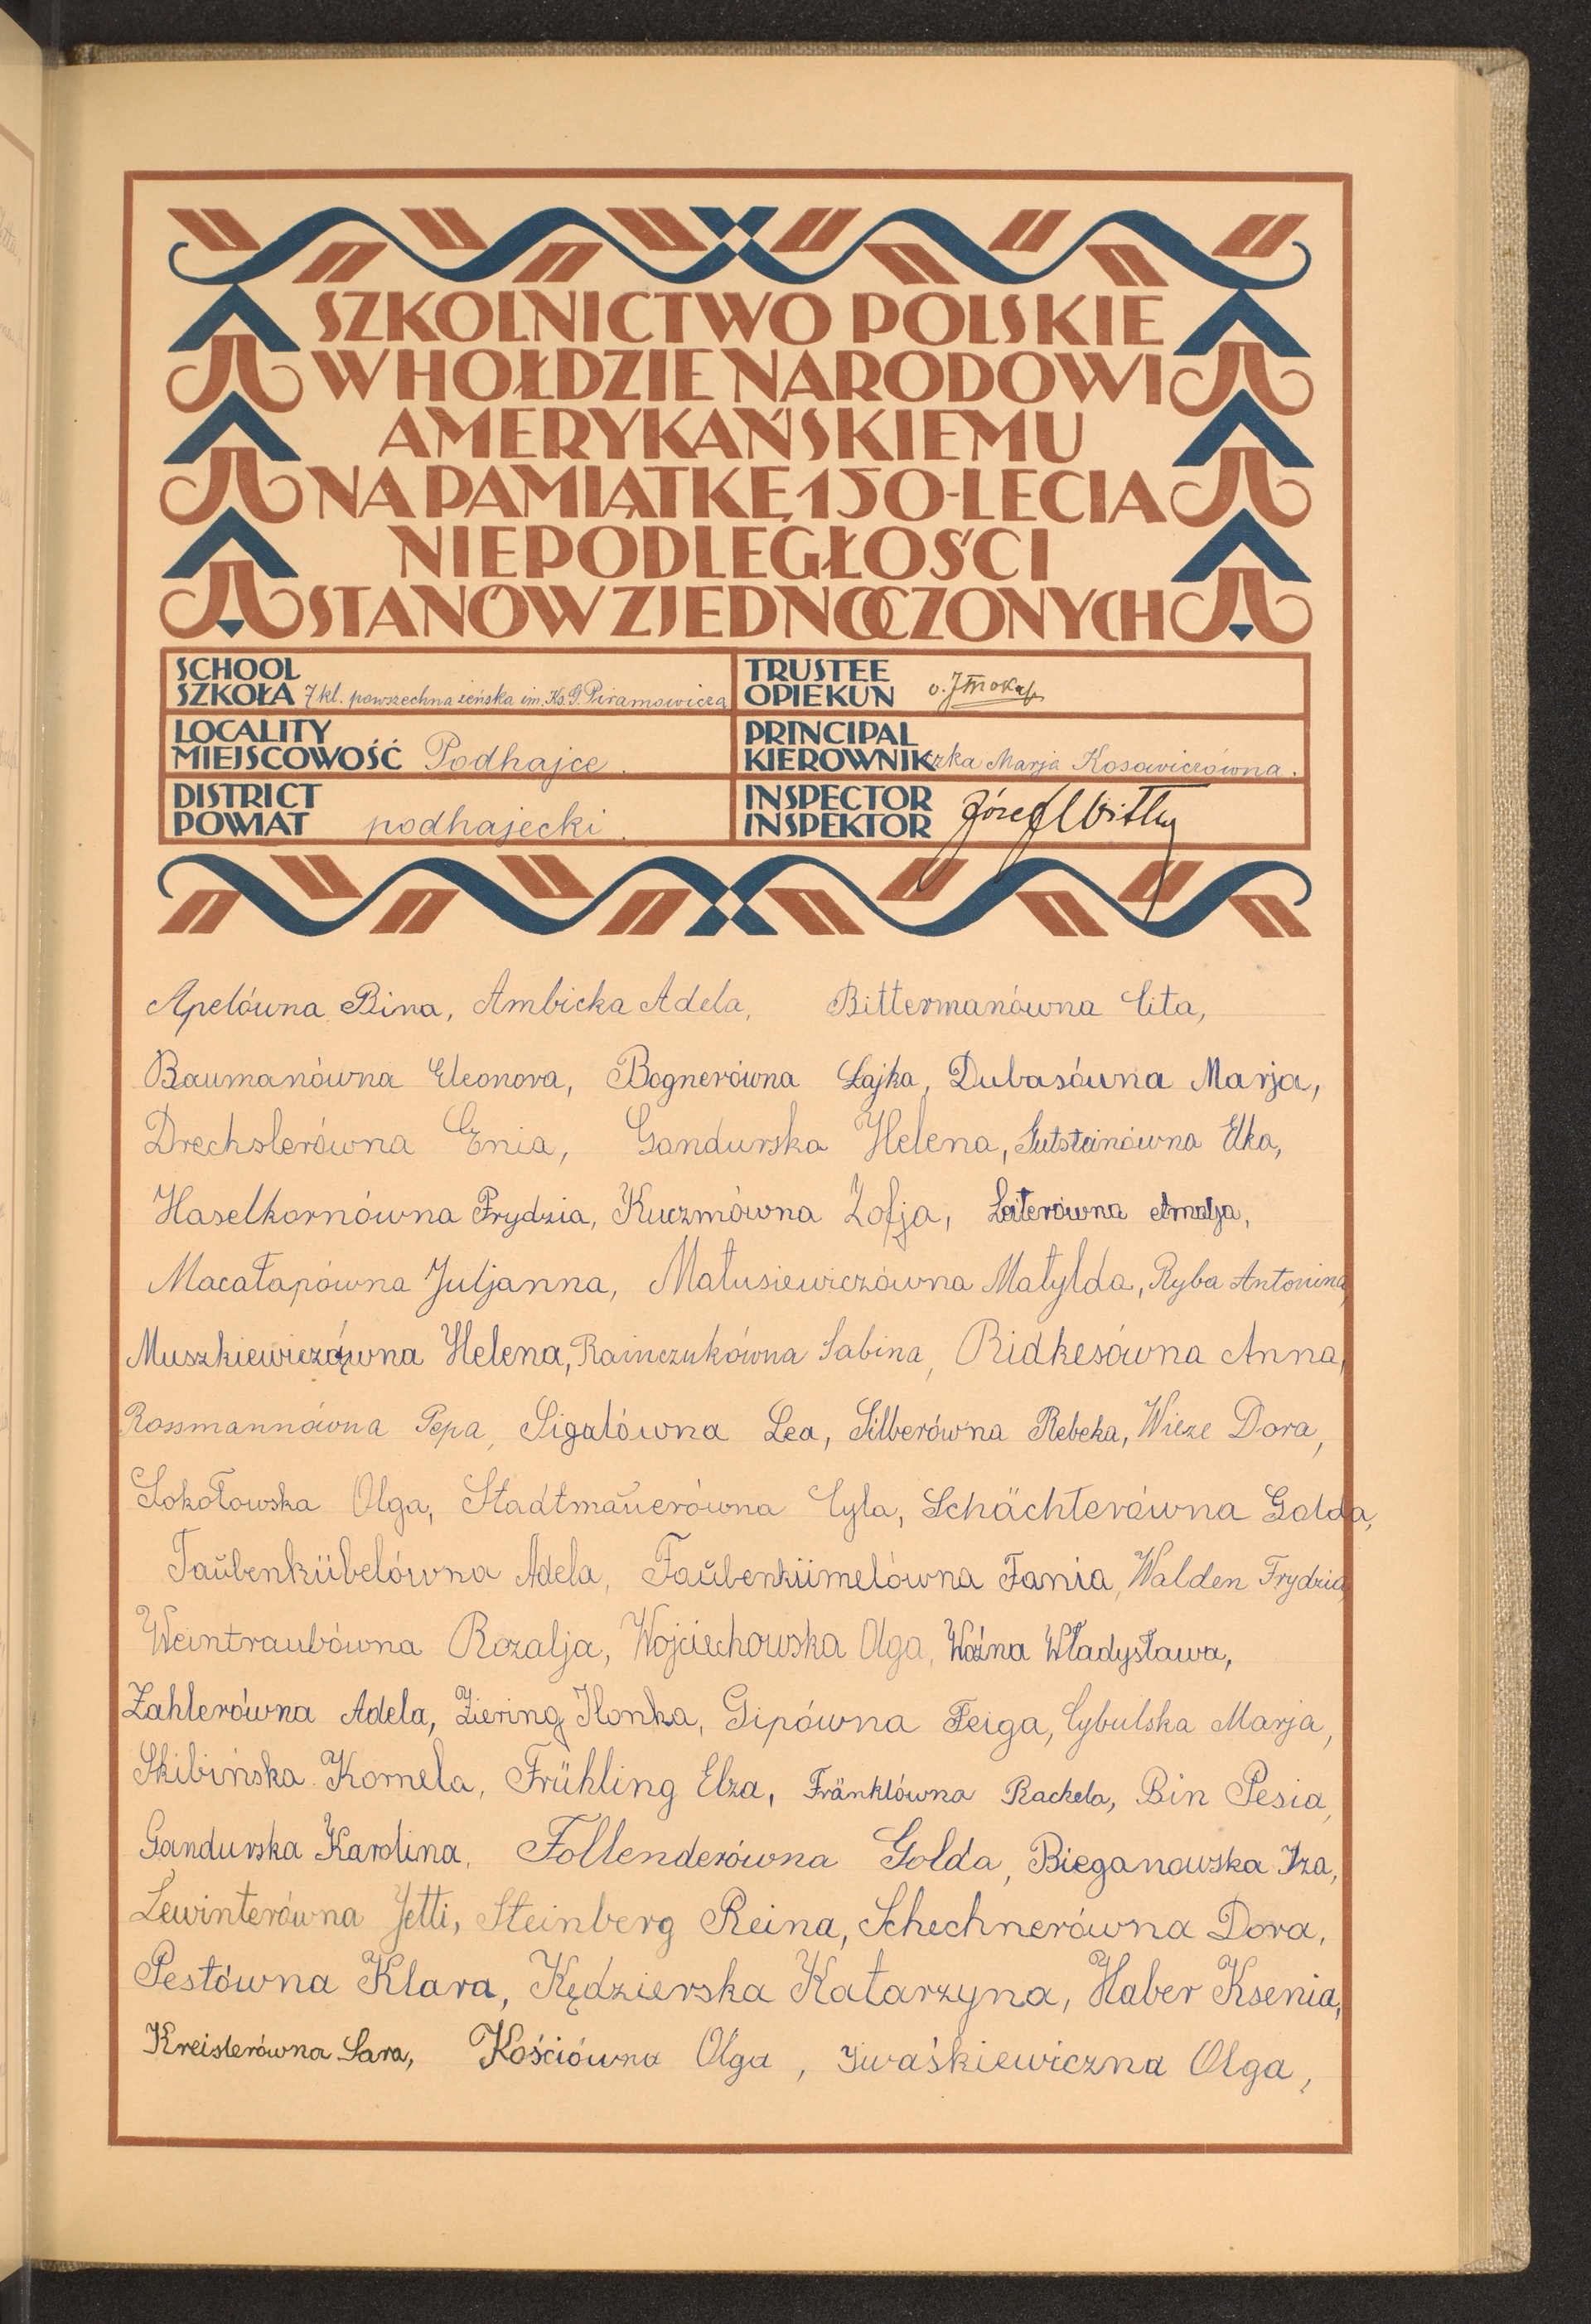 SZKOLNICTWO POLSKIE
W HOŁDZIE NARODOWI
AMERYKAŃSKIEMU
NA PAMIĄTKĘ 150-LECIA
NIEPODLEGŁOŚCI
STANÓW ZJEDNOCZONYCH
SCHOOL
SZKOŁA 7 kl. powszechna żeńska im. Ks. G. Piramowicza
TRUSTEE
OPIEKUN
LOCALITY
MIEJSCOWOŚĆ Podhajce.
PRINCIPAL
KIEROWNIKczka Marja Kosowiczówna.
DISTRICT
POWIAT podhajecki.
INSPECTOR
INSPEKTOR Józef
Apelówna Bina, Ambicka Adela, Bittermanówna Cita,
Baumanówna Eleonora, Bognerówna Łajka, Dubasówna Marja,
Drechslerówna Enia, Gandurska Helena, Gutsteinówna Elka,
Haselkornówna Frydzia, Kuczmówna Zofja, Leiterówna Amalja,
Macałapówna Juljanna, Matusiewiczówna Matylda, Ryba Antonina,
Muszkiewiczówna Helena, Rainczukówna Sabina, Ridkesówna Anna,
Rossmannówna Pepa, Sigalówna Lea, Silberówna Rebeka, Wieze Dora,
Sokołowska Olga, Stadtmaŭerówna Cyla, Schächterówna Golda,
Taŭbenkübelówna Adela, Taŭbenkümelówna Fania, Walden Frydzia,
Weintraubówna Rozalja, Wojciechowska Olga, Woźna Władysława,
Zahlerówna Adela, Ziering Ilonka, Gipówna Feiga, Cybulska Marja,
Skibińska Kornela, Frühling Elza, Fränklówna Rachela, Bin Pesia,
Gandurska Karolina, Follenderówna Golda, Bieganowska Iza,
Lewinterówna Jetti, Steinberg Reina, Schechnerówna Dora,
Pestówna Klara, Kędzierska Katarzyna, Haber Ksenia,
Kreislerówna Sara, Kościówna Olga, Iwaśkiewiczna Olga,